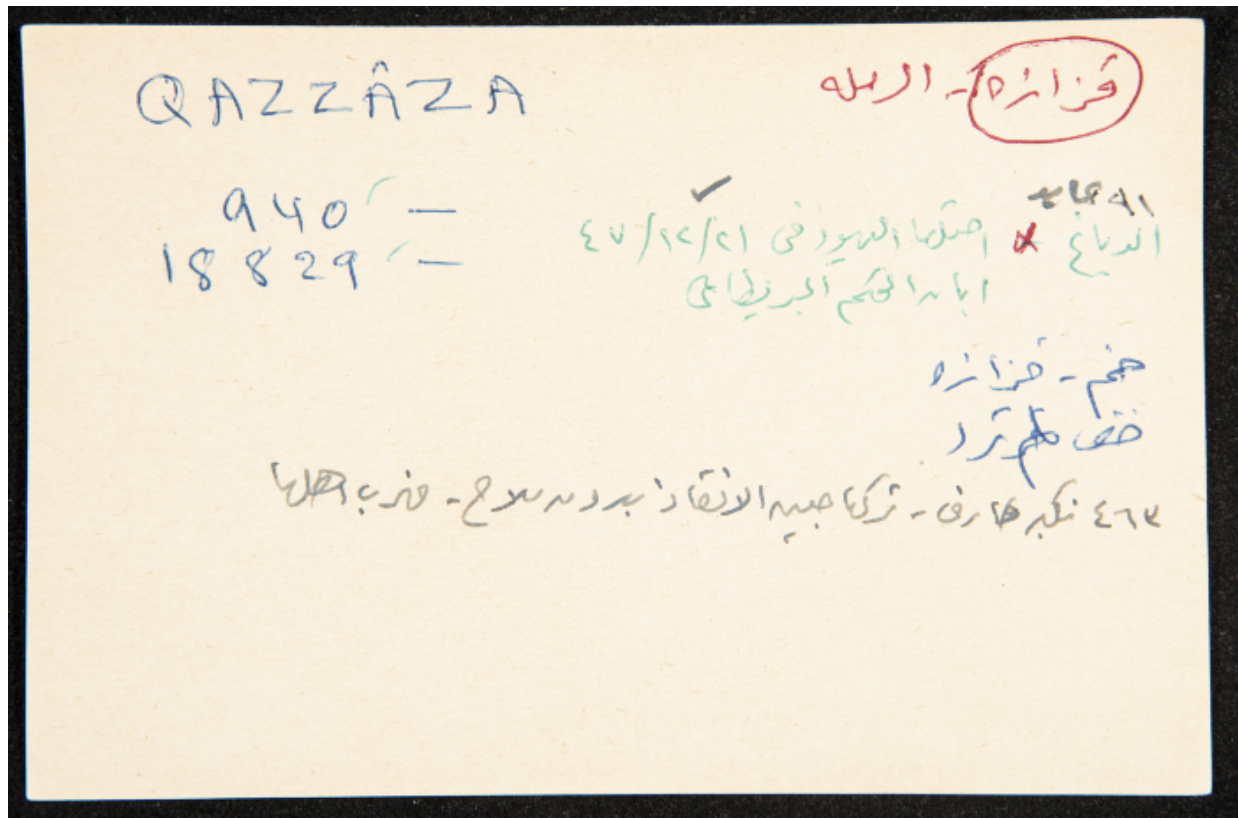 QAZZÂZA
قزازه - الرمله
940 —
18829 —
٩١ عابد
الدباغ × احتلها اليهود في ٤٧/١٢/٢١
ابان الحكم البريطاني
خم - قزازه
لم ترد
٤٦٣ نكبه عارف - تركها جيش الانقاذ بدون سلاح - فهرب اهلها